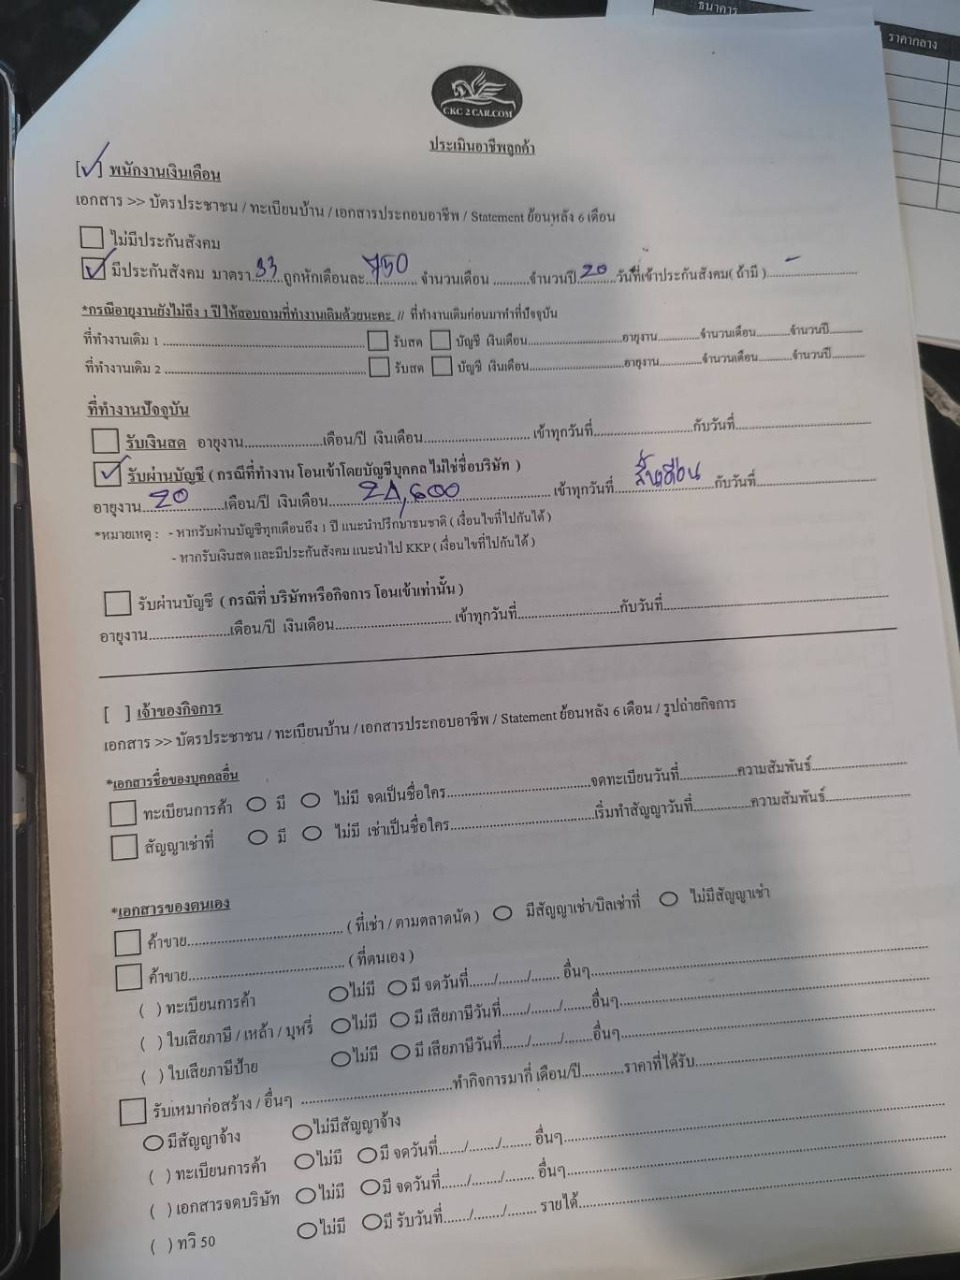 ธนาคาร
ราคากลาง
CKC 2 CAR.COM
ประเมินอาชีพลูกค้า
[✓] พนักงานเงินเดือน
เอกสาร >> บัตรประชาชน / ทะเบียนบ้าน / เอกสารประกอบอาชีพ / Statement ย้อนหลัง 6 เดือน
ไม่มีประกันสังคม
✓ มีประกันสังคม มาตรา 33 ถูกหักเดือนละ 750 จำนวนเดือน ........... จำนวนปี 20 วันที่เข้าประกันสังคม( ถ้ามี ) -
*กรณีอายุงานยังไม่ถึง 1 ปี ให้สอบถามที่ทำงานเดิมด้วยนะคะ // ที่ทำงานเดิมก่อนมาทำที่ปัจจุบัน
ที่ทำงานเดิม 1 ........... รับสด บัญชี เงินเดือน...........อายุงาน...........จำนวนเดือน...........จำนวนปี...........
ที่ทำงานเดิม 2 ........... รับสด บัญชี เงินเดือน...........อายุงาน...........จำนวนเดือน...........จำนวนปี...........
ที่ทำงานปัจจุบัน
รับเงินสด อายุงาน...........เดือน/ปี เงินเดือน........... เข้าทุกวันที่...........กับวันที่...........
✓ รับผ่านบัญชี ( กรณีที่ทำงาน โอนเข้าโดยบัญชีบุคคล ไม่ใช่ชื่อบริษัท )
อายุงาน 20 เดือน/ปี เงินเดือน 21,600 เข้าทุกวันที่ สิ้นเดือน กับวันที่...........
*หมายเหตุ : - หากรับผ่านบัญชีทุกเดือนถึง 1 ปี แนะนำปรึกษาธนชาติ ( เงื่อนไขที่ไปกันได้ )
- หากรับเงินสด และมีประกันสังคม แนะนำไป KKP ( เงื่อนไขที่ไปกันได้ )
รับผ่านบัญชี ( กรณีที่ บริษัทหรือกิจการ โอนเข้าเท่านั้น )
อายุงาน...........เดือน/ปี เงินเดือน........... เข้าทุกวันที่...........กับวันที่...........
[ ] เจ้าของกิจการ
เอกสาร >> บัตรประชาชน / ทะเบียนบ้าน / เอกสารประกอบอาชีพ / Statement ย้อนหลัง 6 เดือน / รูปถ่ายกิจการ
*เอกสารชื่อของบุคคลอื่น
ทะเบียนการค้า มี ไม่มี จดเป็นชื่อใคร...........จดทะเบียนวันที่...........ความสัมพันธ์...........
สัญญาเช่าที่ มี ไม่มี เช่าเป็นชื่อใคร...........เริ่มทำสัญญาวันที่...........ความสัมพันธ์...........
*เอกสารของตนเอง
ค้าขาย........... ( ที่เช่า / ตามตลาดนัด ) มีสัญญาเช่า/บิลเช่าที่ ไม่มีสัญญาเช่า
ค้าขาย........... ( ที่ตนเอง )
( ) ทะเบียนการค้า ไม่มี มี จดวันที่....../......./....... อื่นๆ...........
( ) ใบเสียภาษี / เหล้า / บุหรี่ ไม่มี มี เสียภาษีวันที่....../......./.......อื่นๆ...........
( ) ใบเสียภาษีป้าย ไม่มี มี เสียภาษีวันที่....../......./.......อื่นๆ...........
รับเหมาก่อสร้าง / อื่นๆ ...........ทำกิจการมากี่ เดือน/ปี...........ราคาที่ได้รับ...........
มีสัญญาจ้าง ไม่มีสัญญาจ้าง
( ) ทะเบียนการค้า ไม่มี มี จดวันที่....../......./....... อื่นๆ...........
( ) เอกสารจดบริษัท ไม่มี มี จดวันที่....../......./....... อื่นๆ...........
( ) ทวิ 50 ไม่มี มี รับวันที่....../......./....... รายได้...........